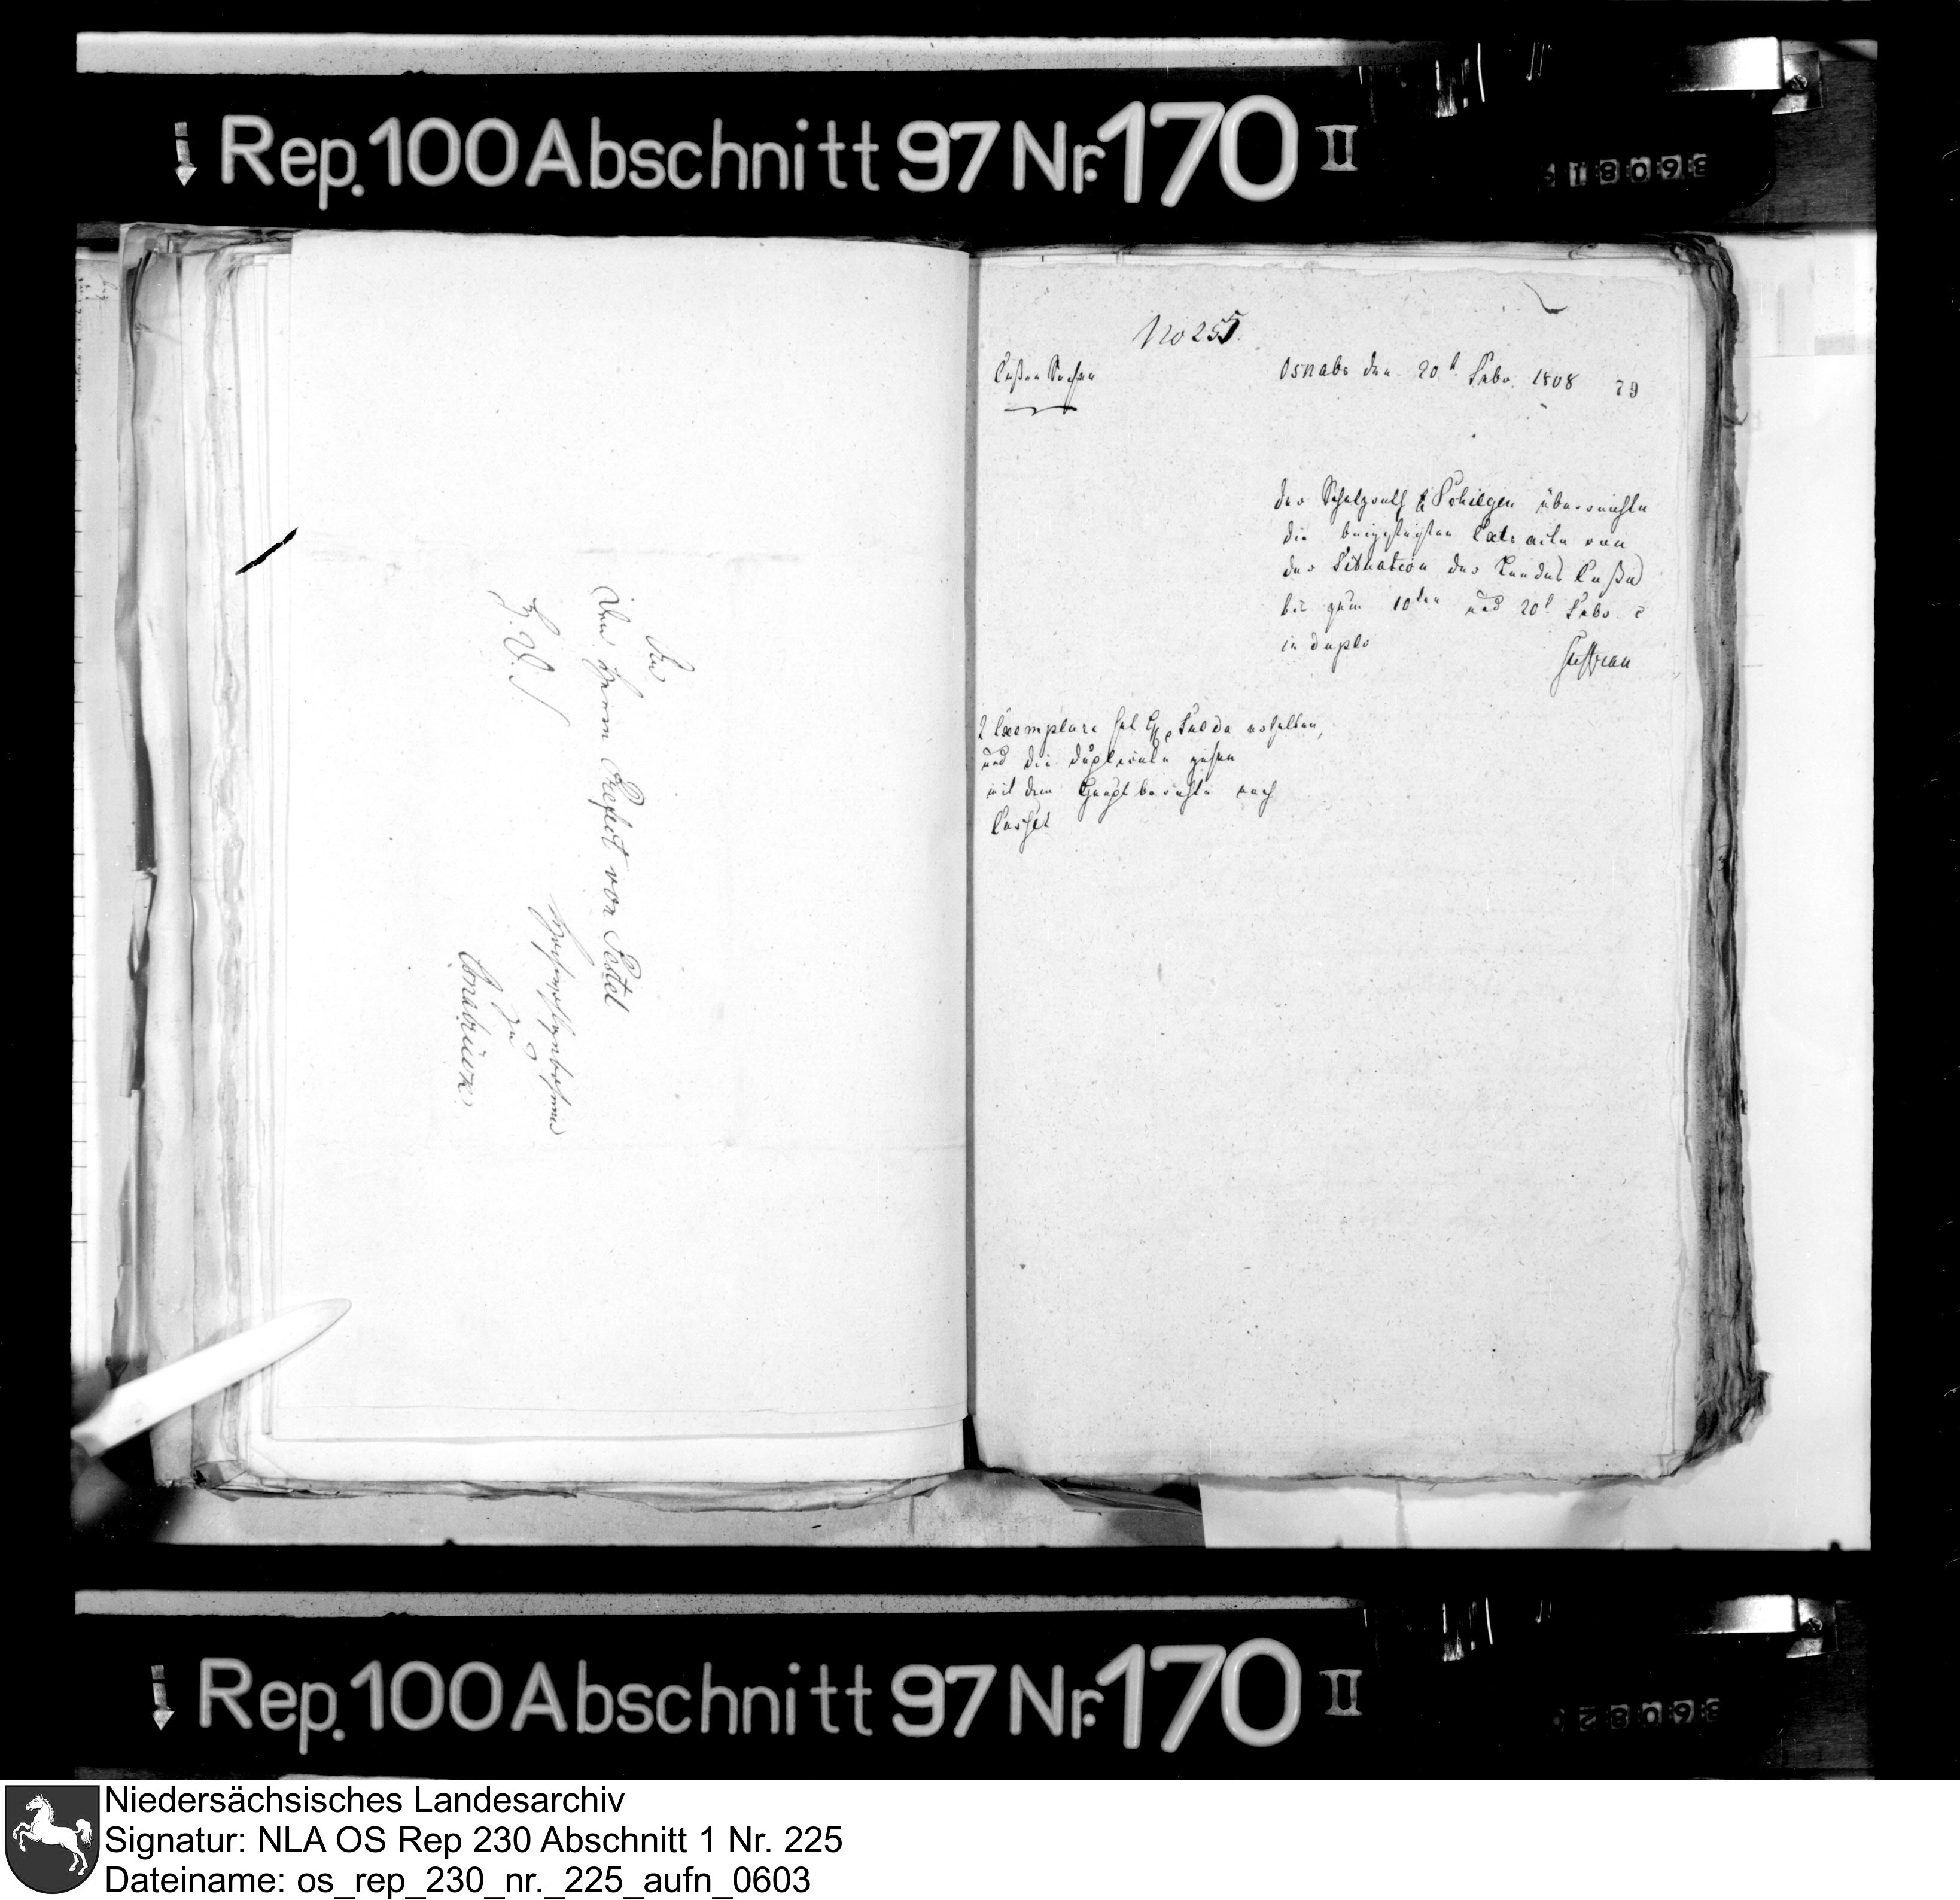 Rep. 100 Abschnitt 97 Nr. 170 II
An
den Herrn Prefect von Pestel
Hochwohlgebohren
H. D. S.
zu
Osnabrück
No 255.
Cassen Sachen
Osnabr den 20t Febr. 1808
79
der Schatzrath Schilgen überreichte
die beigefügten Extracte von
der Situation der Landes Cassa
bis zum 10ten und 20t Febr. c
in duplo
2 Exemplare hat erhalten,
und die Duplicate gehen
mit dem Hauptberichte nach
Cassel
Rep. 100 Abschnitt 97 Nr. 170 II
Niedersächsisches Landesarchiv
Signatur: NLA OS Rep 230 Abschnitt 1 Nr. 225
Dateiname: os_rep_230_nr._225_aufn_0603